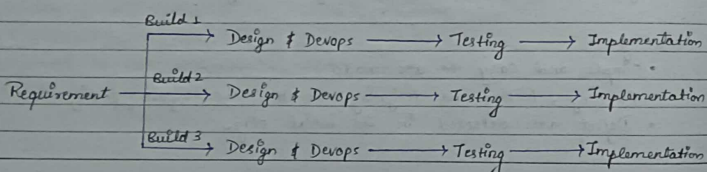 Build 1
Design & Devops → Testing → Implementation
Requirement
Build 2
Design & Devops → Testing → Implementation
Build 3
Design & Devops → Testing → Implementation